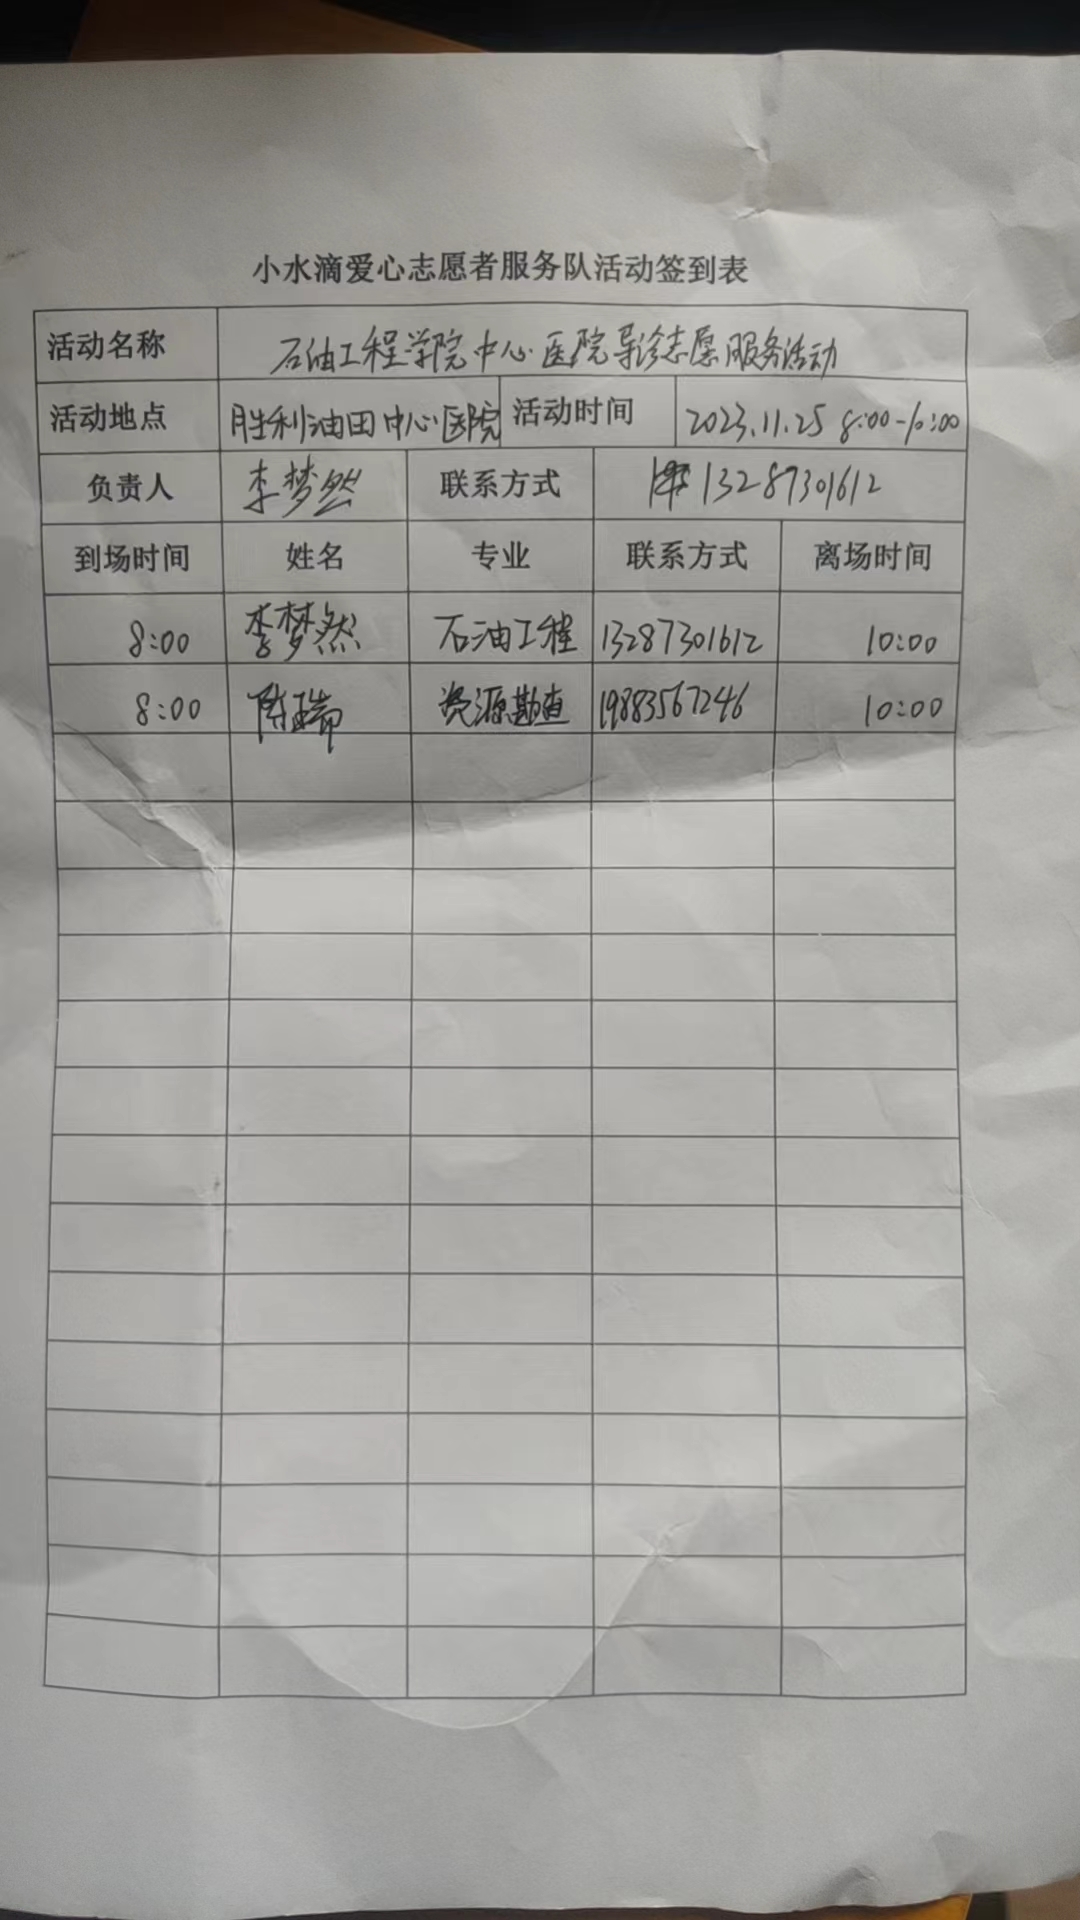 小水滴爱心志愿者服务队活动签到表
活动名称 石油工程学院中心医院导诊志愿服务活动
活动地点 胜利油田中心医院 活动时间 2023.11.25 8:00-10:00
负责人 李梦然 联系方式 13287301612
到场时间 姓名 专业 联系方式 离场时间
8:00 李梦然 石油工程 13287301612 10:00
8:00 陈瑞 资源勘查 19883567246 10:00